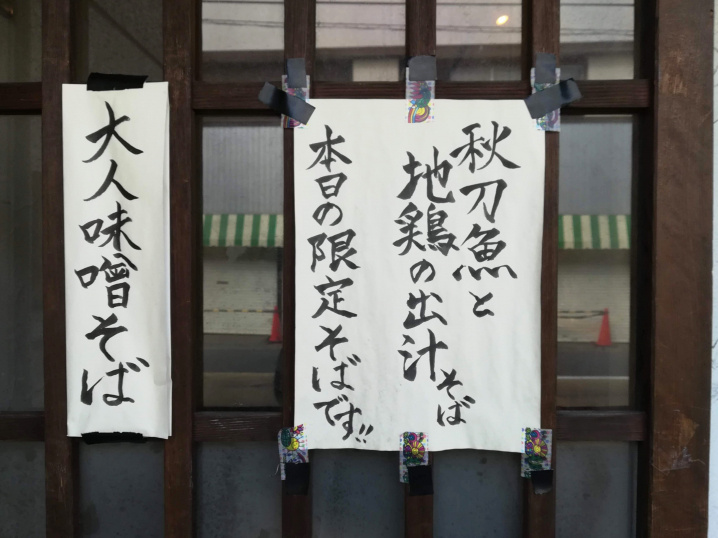 秋刀魚と
地鶏の出汁そば
本日の限定そばです!!
大人味噌そば